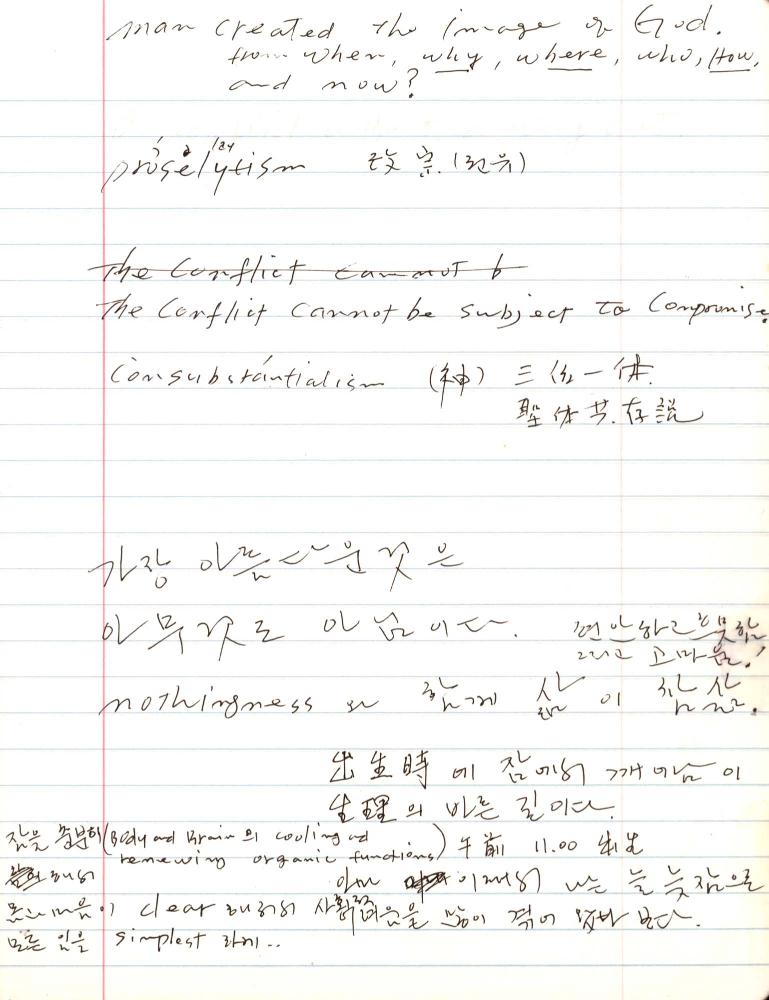 man created the image of God.
from when, why, where, who, How,
and now?
prosélytism 改宗 (권유)
The Conflict cannot b
The Conflict cannot be subject to Compromise.
Consubstántialism (神) 三位一体.
聖体共存説
가장 아름다운 것은
아무것도 아님이다. 편안하고 흐뭇함
그리고 고마움.!
nothingness와 함께 삶이 참 삶.
出生時에 잠에서 깨어남이
生理의 바른 길이다.
잠을 충분히 (Body and Brain의 cooling and
renewing organic functions) 午前 11.00 出生
해서 아마 이래서 나는 늘 늦잠으로
몸과 마음이 clear 해져서 많이 겪어 보다.
모든 일을 simplest 하게..